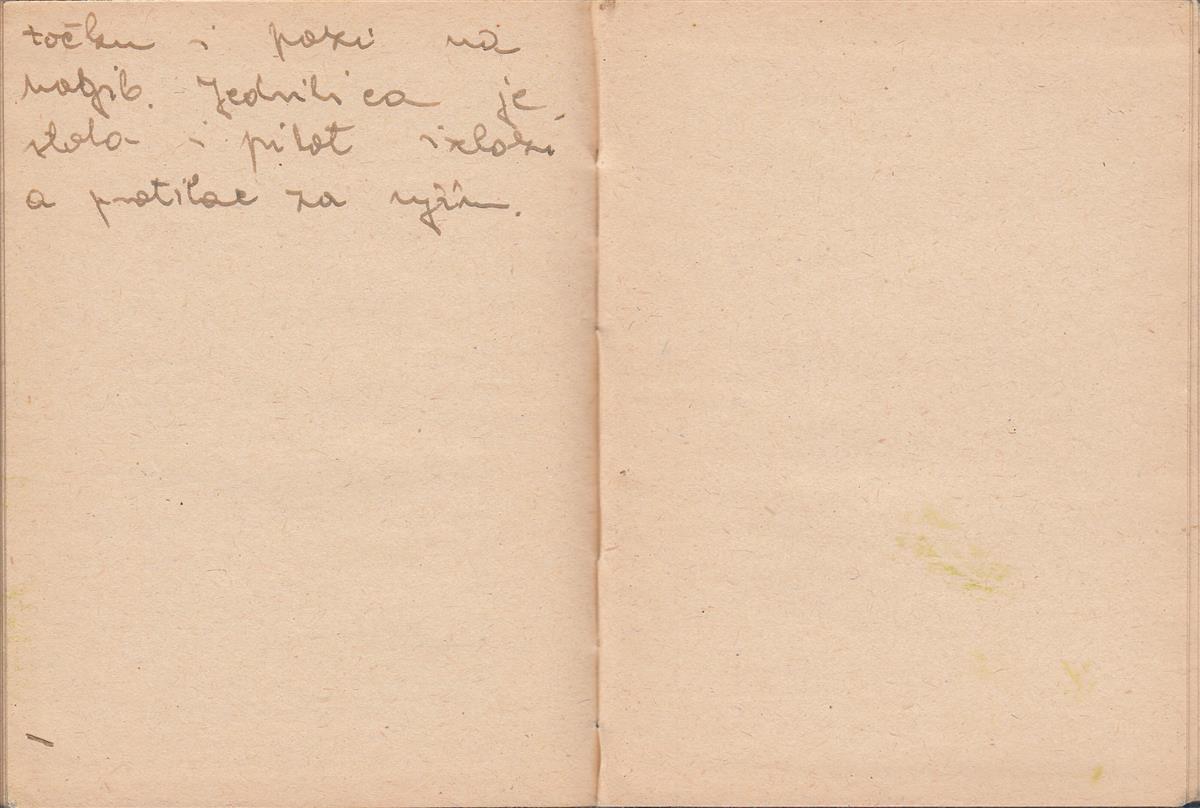 točku i pazi na
nagib. Jedrilica je
stala i pilot izlazi
a protilac za njim.